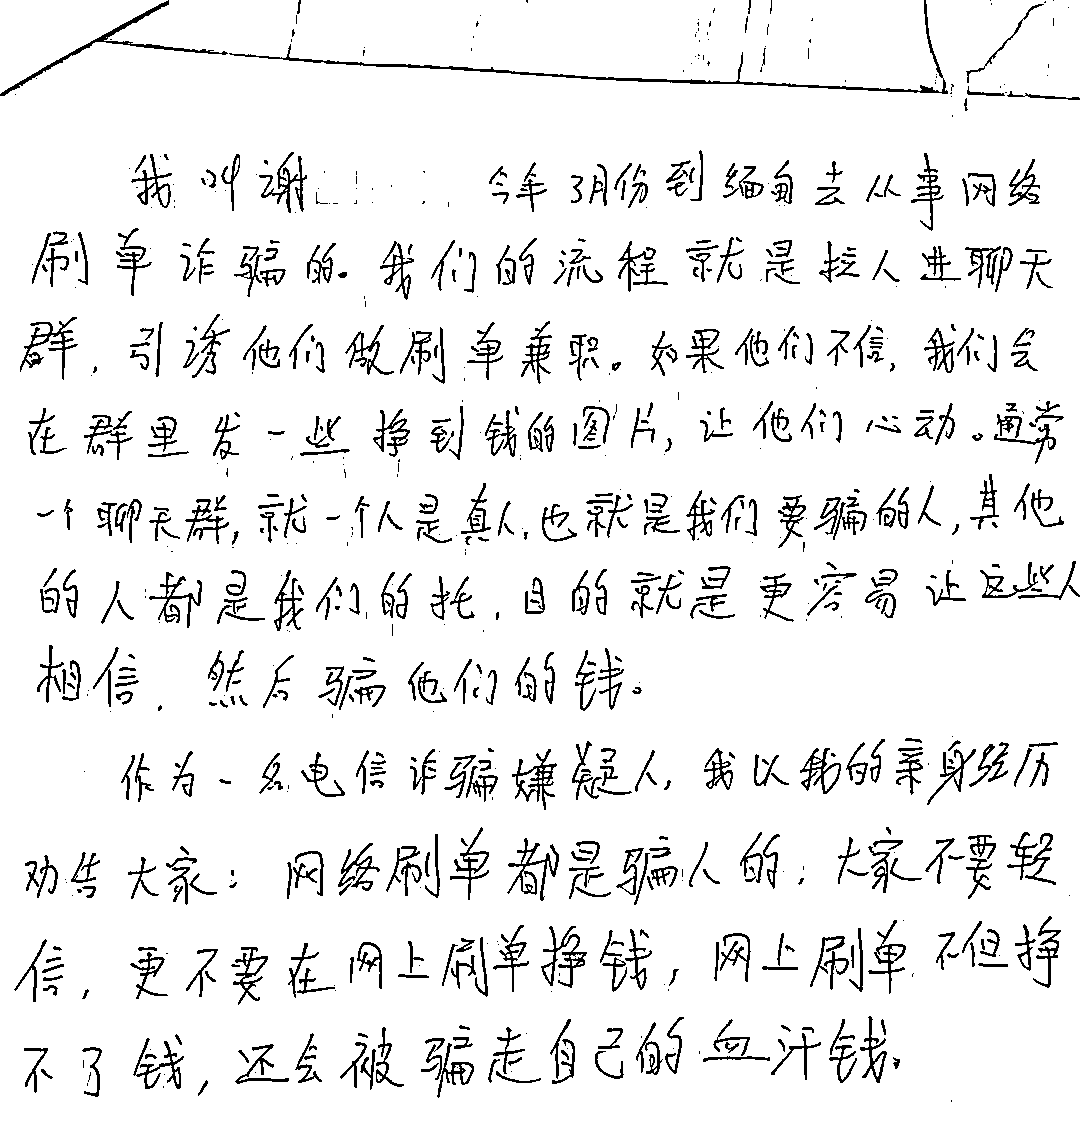 我叫谢 今年3月份到缅甸去从事网络
刷单诈骗的。我们的流程就是拉人进聊天
群，引诱他们做刷单兼职。如果他们不信，我们会
在群里发一些挣到钱的图片，让他们心动。通常
一个聊天群，就一个人是真人，也就是我们要骗的人，其他
的人都是我们的托，目的就是更容易让这些人
相信，然后骗他们的钱。
作为一名电信诈骗嫌疑人，我以我的亲身经历
劝告大家：网络刷单都是骗人的，大家不要轻
信，更不要在网上刷单挣钱，网上刷单不但挣
不了钱，还会被骗走自己的血汗钱。